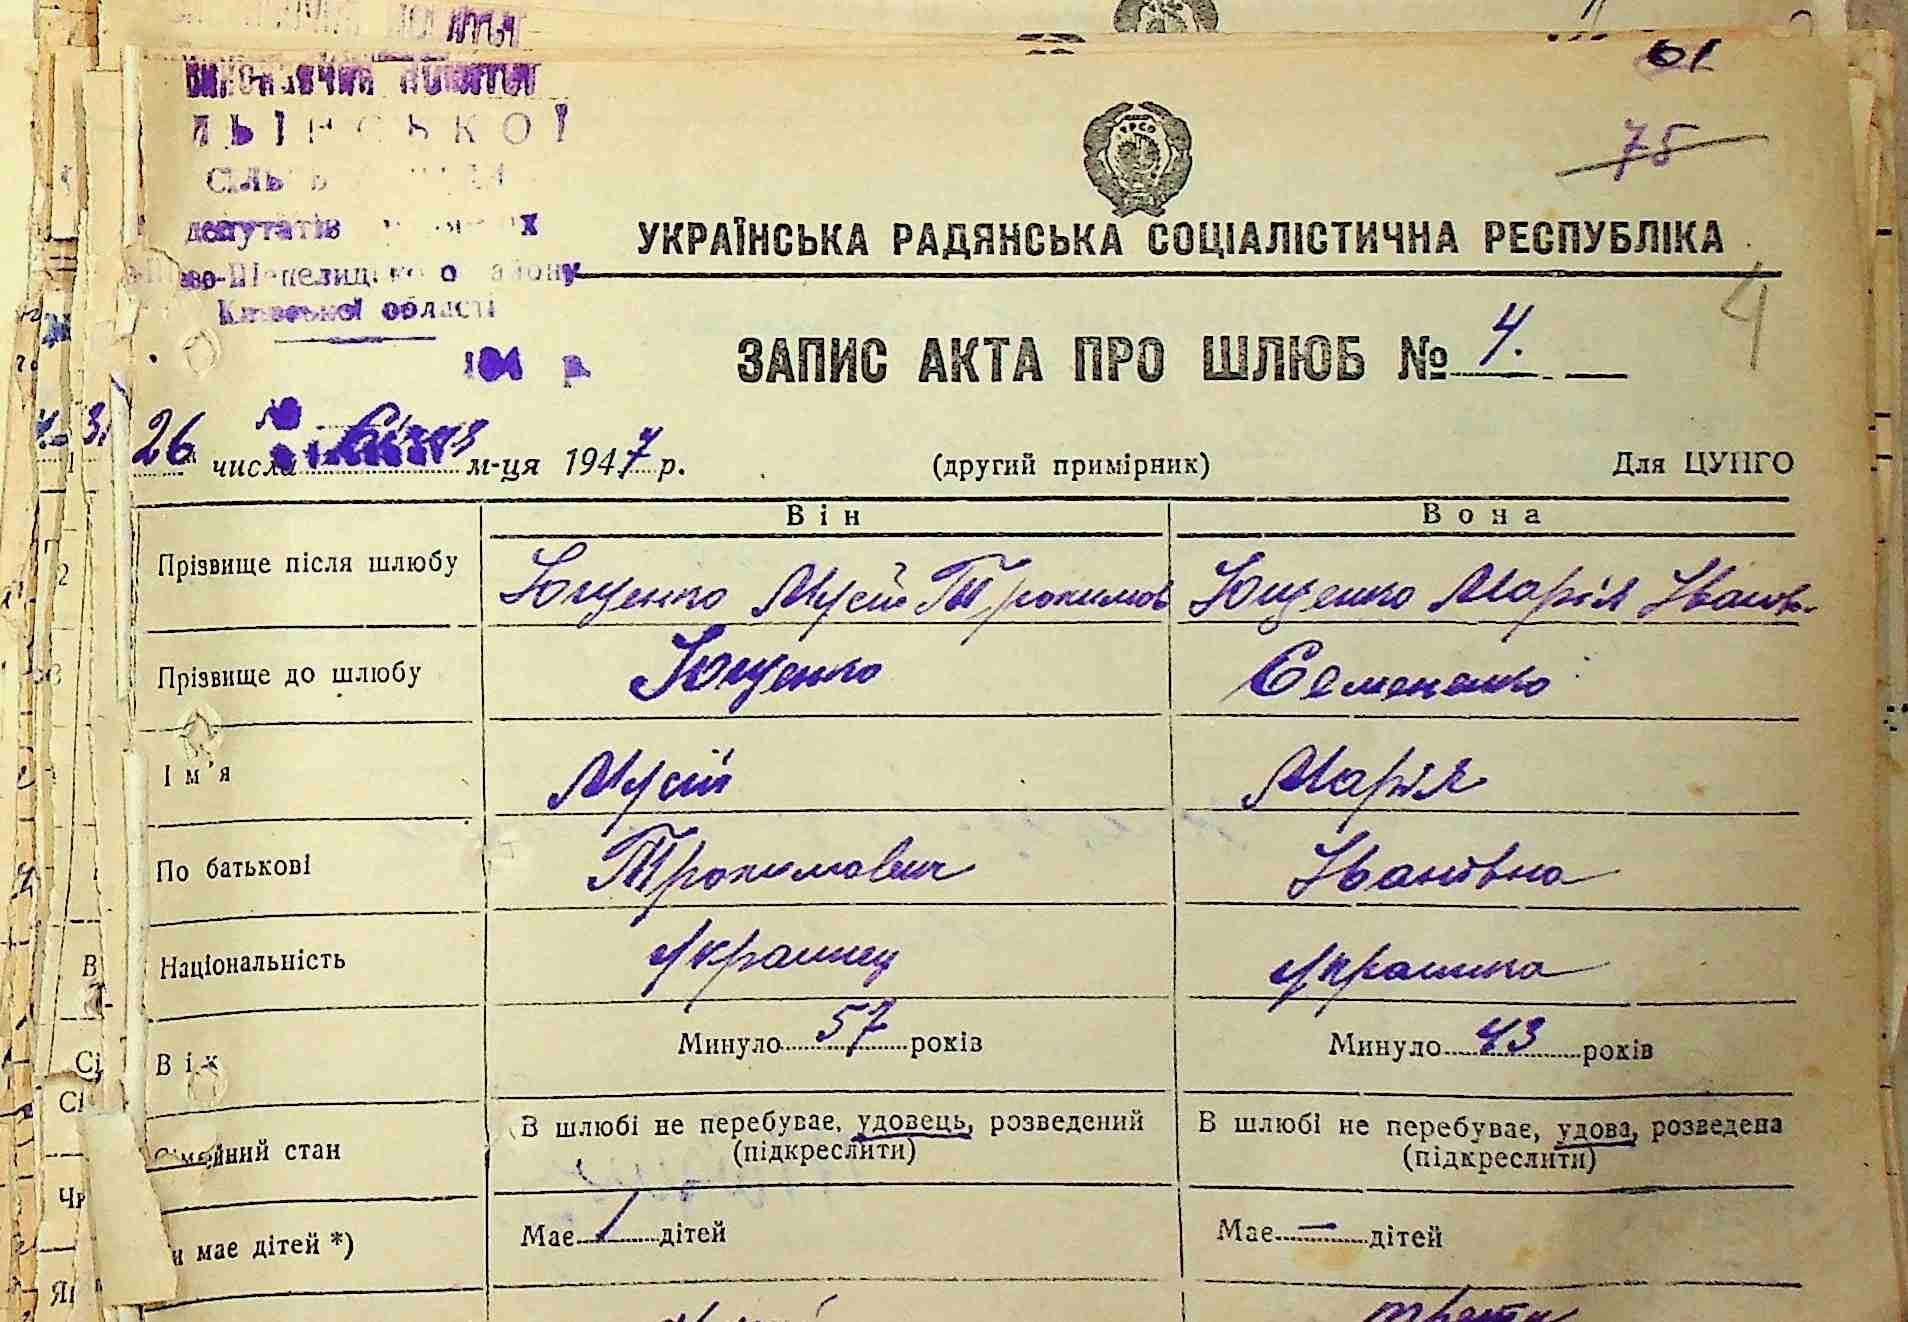 61
75
депутатів
Київської області
УКРАЇНСЬКА РАДЯНСЬКА СОЦІАЛІСТИЧНА РЕСПУБЛІКА
4
ЗАПИС АКТА ПРО ШЛЮБ № 4.
26 числа Січня м-ця 1947 р. (другий примірник) Для ЦУНГО
Він Вона
Прізвище після шлюбу Ющенко Мусій Трохимов Ющенко Марія Іванов.
Прізвище до шлюбу Ющенко Семененко
Ім'я Мусій Марія
По батькові Трохимович Іванівна
Національність Украинец Украинка
Вік Минуло 57 років Минуло 43 років
Сімейний стан В шлюбі не перебуває, удовець, розведений (підкреслити) В шлюбі не перебуває, удова, розведена (підкреслити)
и має дітей *) Має 1 дітей Має — дітей